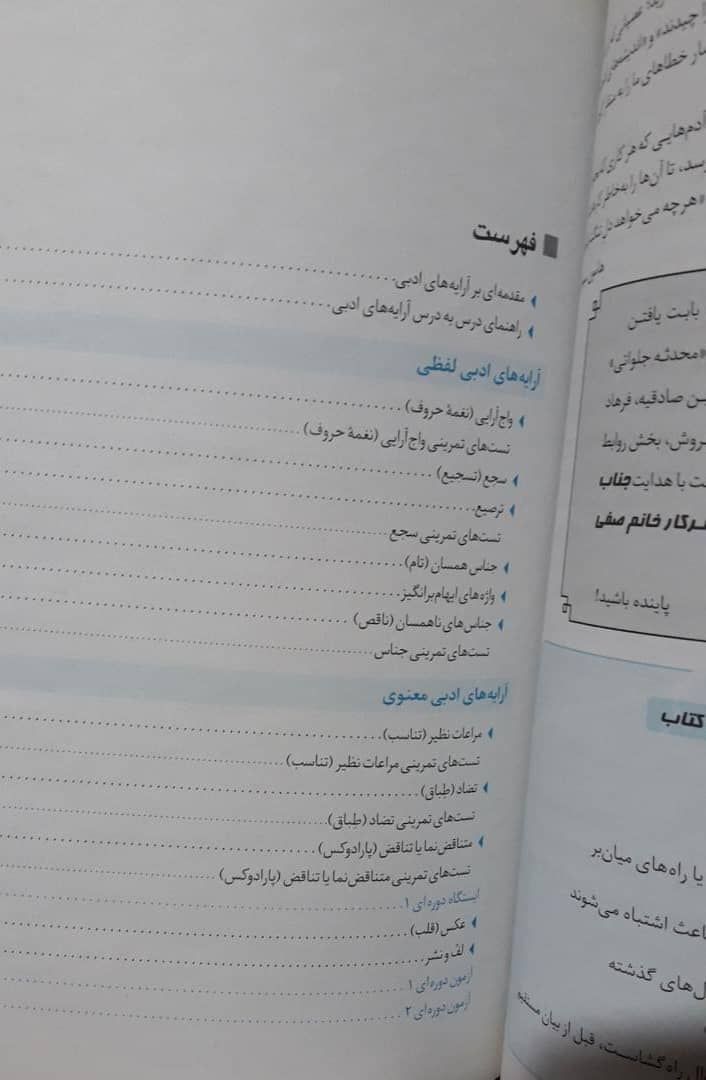 فهرست
مقدمه‌ای بر آرایه‌های ادبی
راهنمای درس به درس آرایه‌های ادبی
آرایه‌های ادبی لفظی
واج‌آرایی (نغمهٔ حروف)
تست‌های تمرینی واج‌آرایی (نغمهٔ حروف)
سجع (تسجیع)
ترصیع
تست‌های تمرینی سجع
جناس همسان (تام)
واژه‌های ایهام‌برانگیز
جناس‌های ناهمسان (ناقص)
تست‌های تمرینی جناس
آرایه‌های ادبی معنوی
مراعات نظیر (تناسب)
تست‌های تمرینی مراعات نظیر (تناسب)
تضاد (طِباق)
تست‌های تمرینی تضاد (طِباق)
متناقض‌نما یا تناقض (پارادوکس)
تست‌های تمرینی متناقض‌نما یا تناقض (پارادوکس)
ایستگاه دوره‌ای ۱
عکس (قلب)
لف و نشر
آزمون دوره‌ای ۱
آزمون دوره‌ای ۲
چیدند» و «اندیشیدن
سار خطاهای ما را به
آدم‌هایی که هر کاری
رسد، تا آن‌ها را به‌خاطر
«هر چه می‌خواهد دل
بابت یافتن
«محدثه جلوانی»
سن صادقیه، فرهاد
فروش، بخش روابط
ت با هدایت جناب
سرکار خانم صفی
پاینده باشید!
کتاب
یا راه‌های میان‌بر
باعث اشتباه می‌شوند
ل‌های گذشته
راه گشاست، قبل از بیان مستقیم